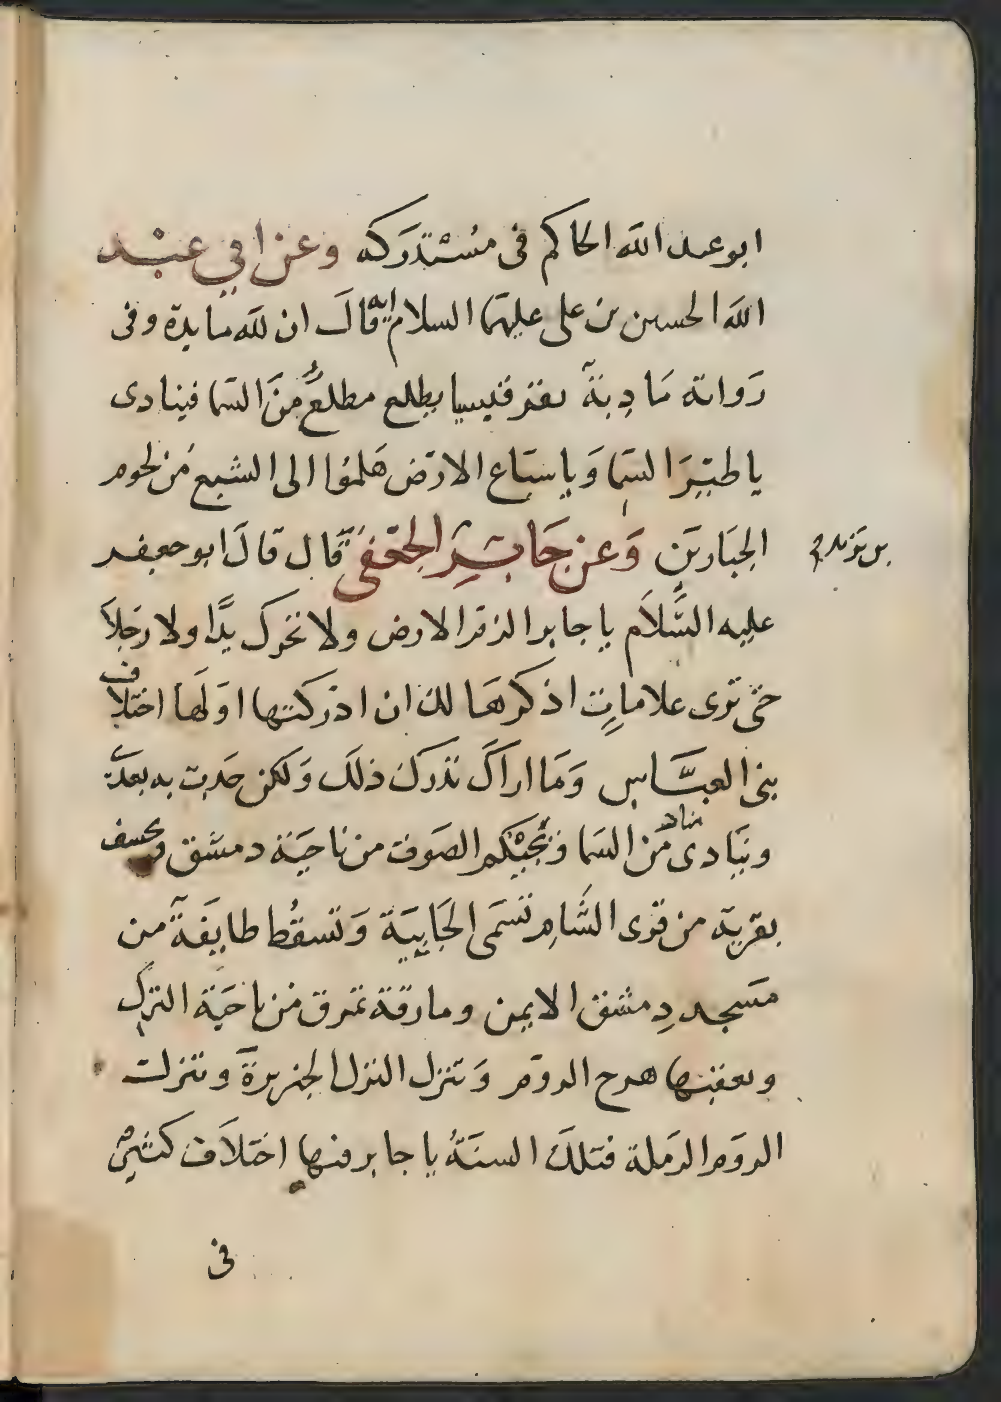 ابو عبد الله الحاكم فى مُسْتدرَكه وعن ابي عبْد
الله الحسين بن على عليهما السلام انه قالَ ان لله مايدة وفى
رَواية مَادِبَة بقرقيسيا يطلع مطلعٌ مِنَ السَما فينادى
يا طيْرَ السَما وَيا سبَاع الارَض هَلموُا الى الشبع مِن لحوم
الجبَارين وَعن جَابِر الجعفى قال قالَ ابو جعفر
بن يزيد
عليه السَّلاَم يا جابر الزقر الارض ولا تحرك يدًا ولا رجلاً
حتى ترى علاماتِ اذكرهَا لك ان ادْركتها اوَلَها اختلاف
بنى العبَّاس وَمَا اراكَ تدْرك ذلكَ وَلكن حَدث به بعدى
وينَادى مناد مِن السَما وَيَجيْكم الصَوت من ناحيَة دمشق ويخسف
بقرية من قرى الشَامِ تسَمى الجَابيَة وَتسقُط طايفَة من
مَسجد دِمشق الايمن ومارقَة تمرق مَن ناحيَة الترك
ويعقبها هرج الروَم وَتنزل الترك الجزيرة وتنزلت
الروَم الرَملة فتلكَ السنَةُ يا جابر فيها اختلاَف كثير
فى